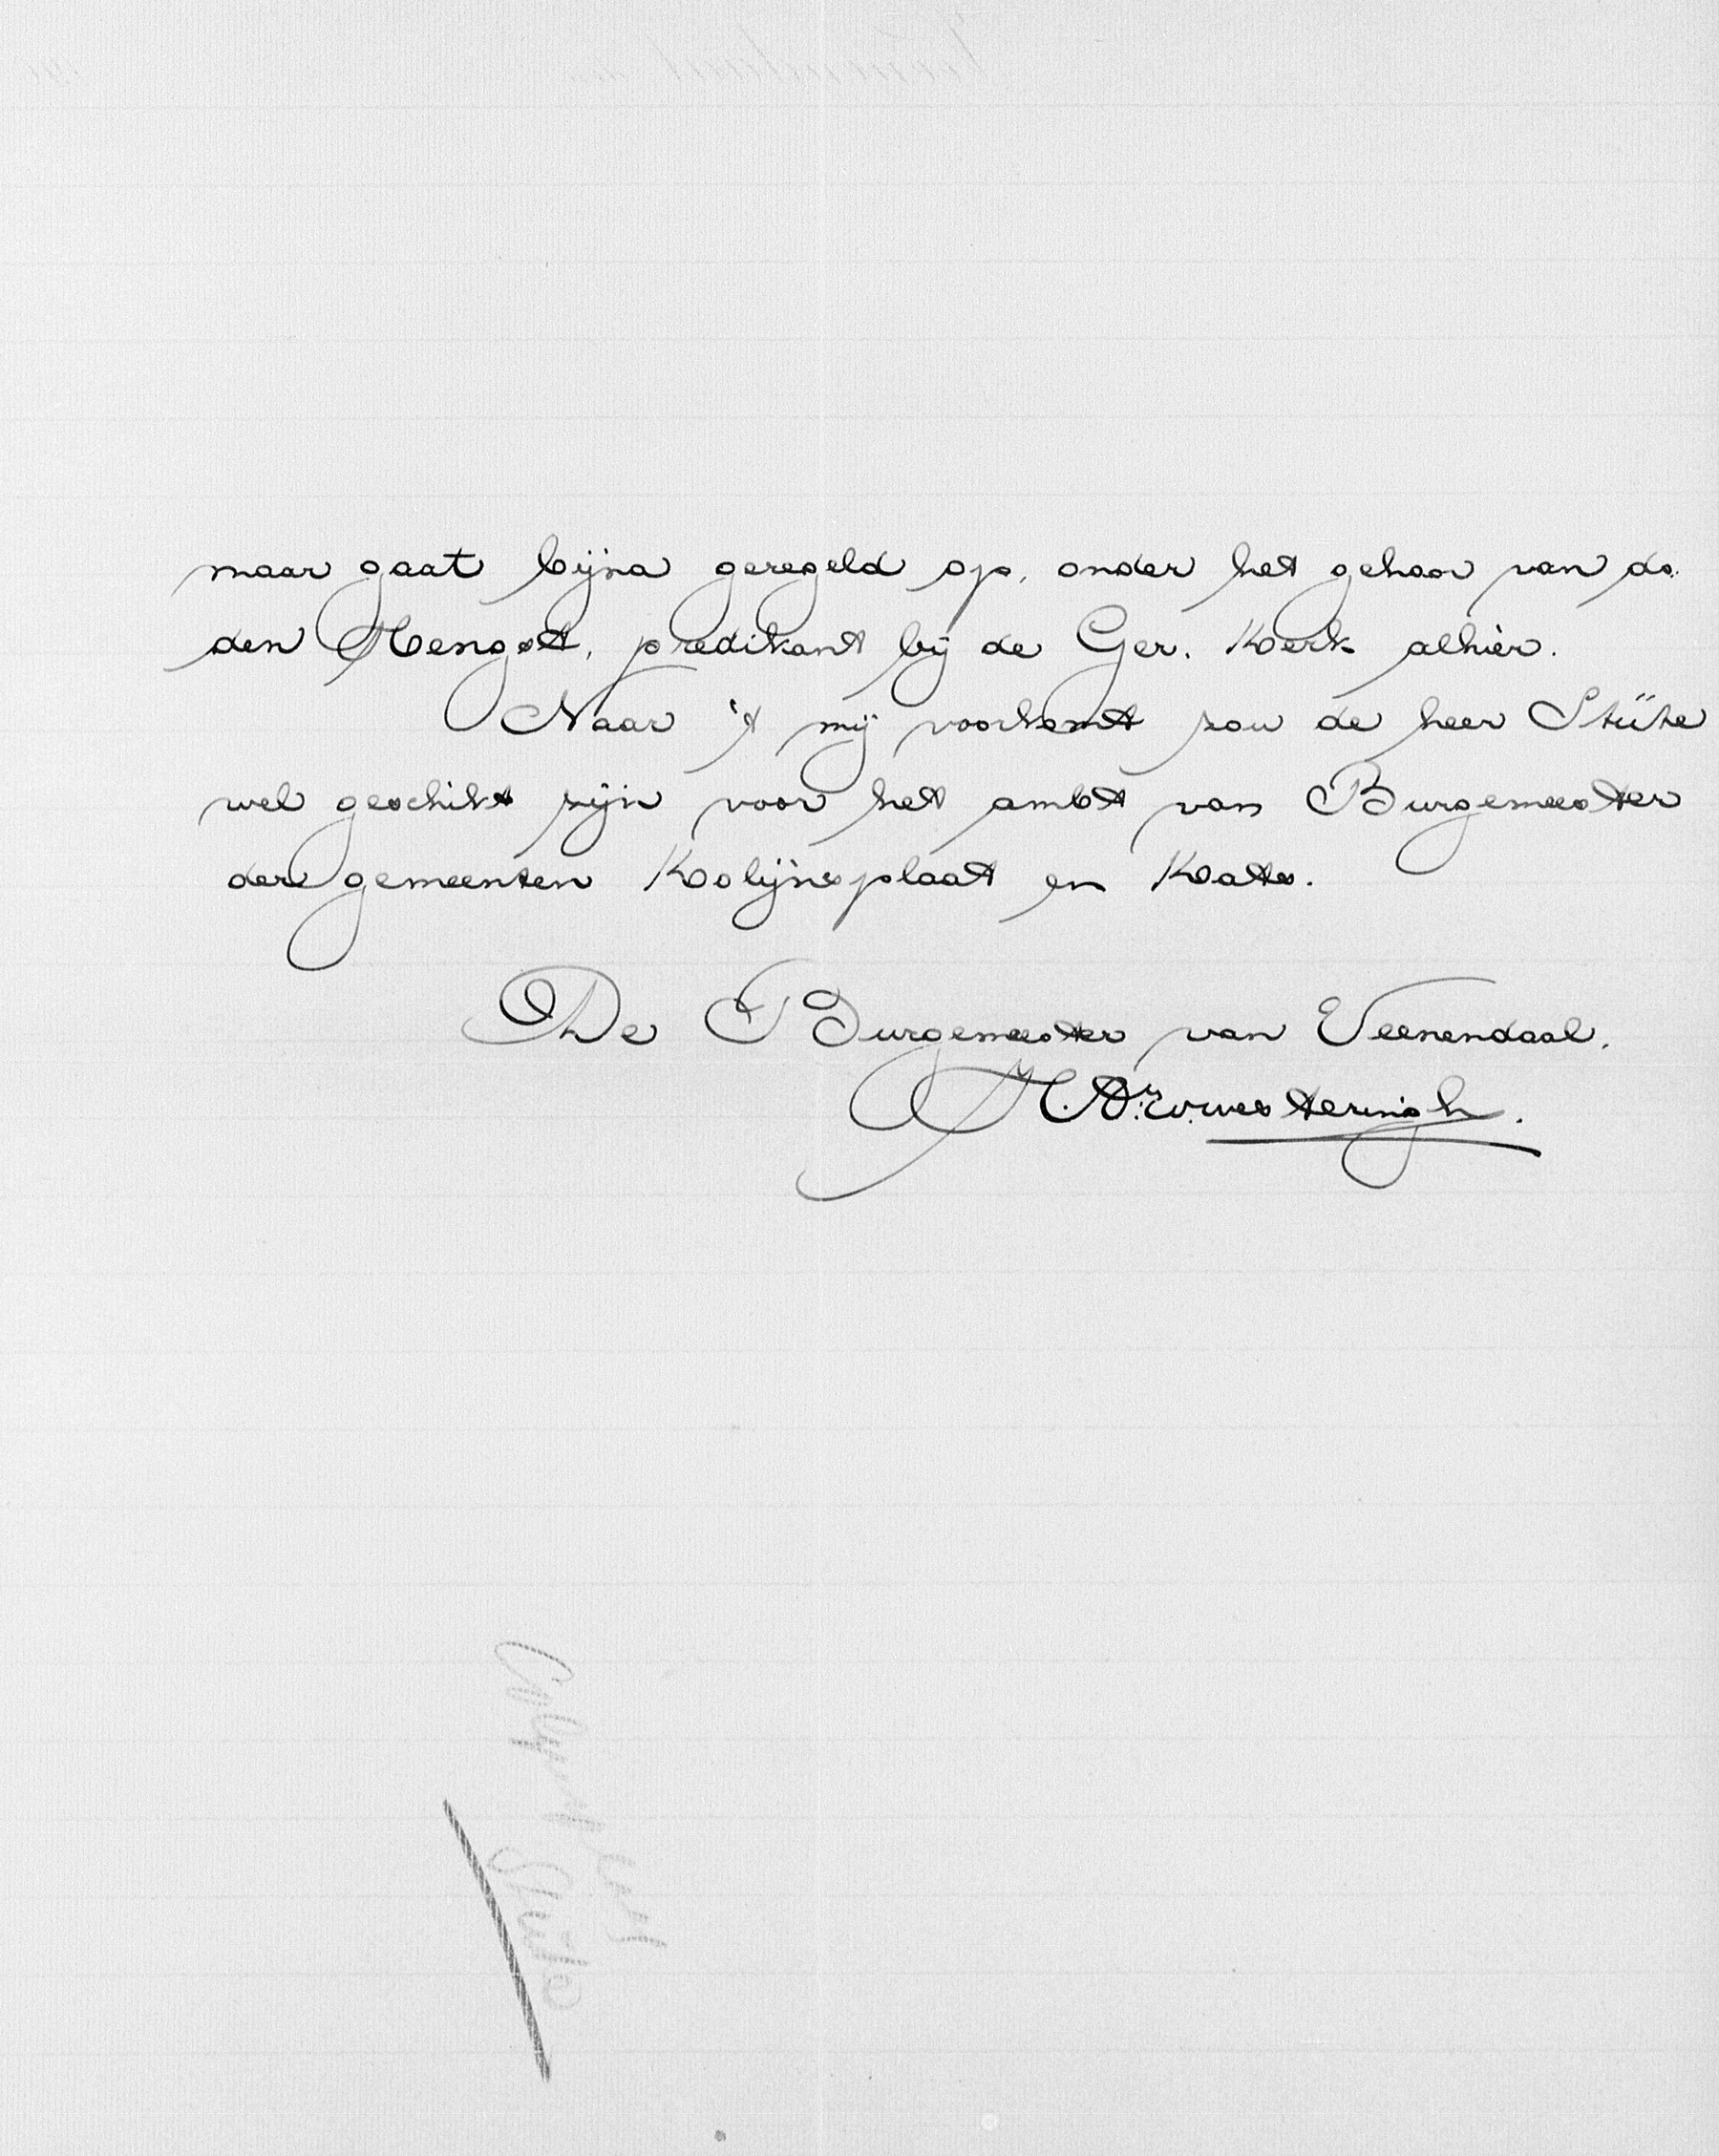 maar gaat bijna geregeld op, onder het gehoor van ds.
den Hengst, predikant bij de Ger. Kerk alhier.
Naar 't mij voorkomt zou de heer Stüte
wel geschikt zijn voor het ambt van Burgemeester
der gemeenten Kolijnsplaat en Kats.
De Burgemeester van Veenendaal.
Stüte